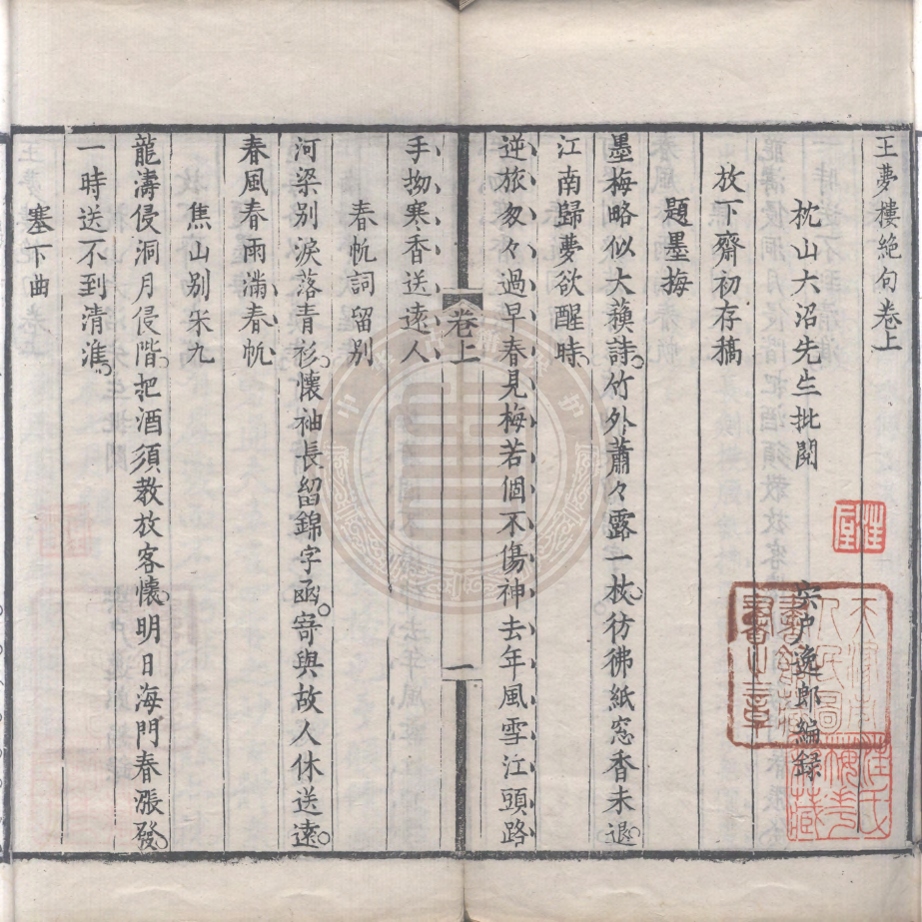 王夢樓絶句卷上
枕山大沼先生批閲
宍戸逸郎編録
放下齋初存稿
題墨梅
墨梅略似大蘓詩。竹外蕭々露一枝。彷彿紙窓香未退。
江南歸夢欲醒時。
逆旅匆々過早春見梅若個不傷神去年風雪江頭路
卷上
一
手拗寒香送遠人
春帆詞留別
河梁別淚落青衫。懷袖長留錦字函。寄與故人休送遠。
春風春雨滿春帆
焦山別朱九
龍濤侵洞月侵階。把酒須教放客懷。明日海門春漲發。
一時送不到清淮。
塞下曲